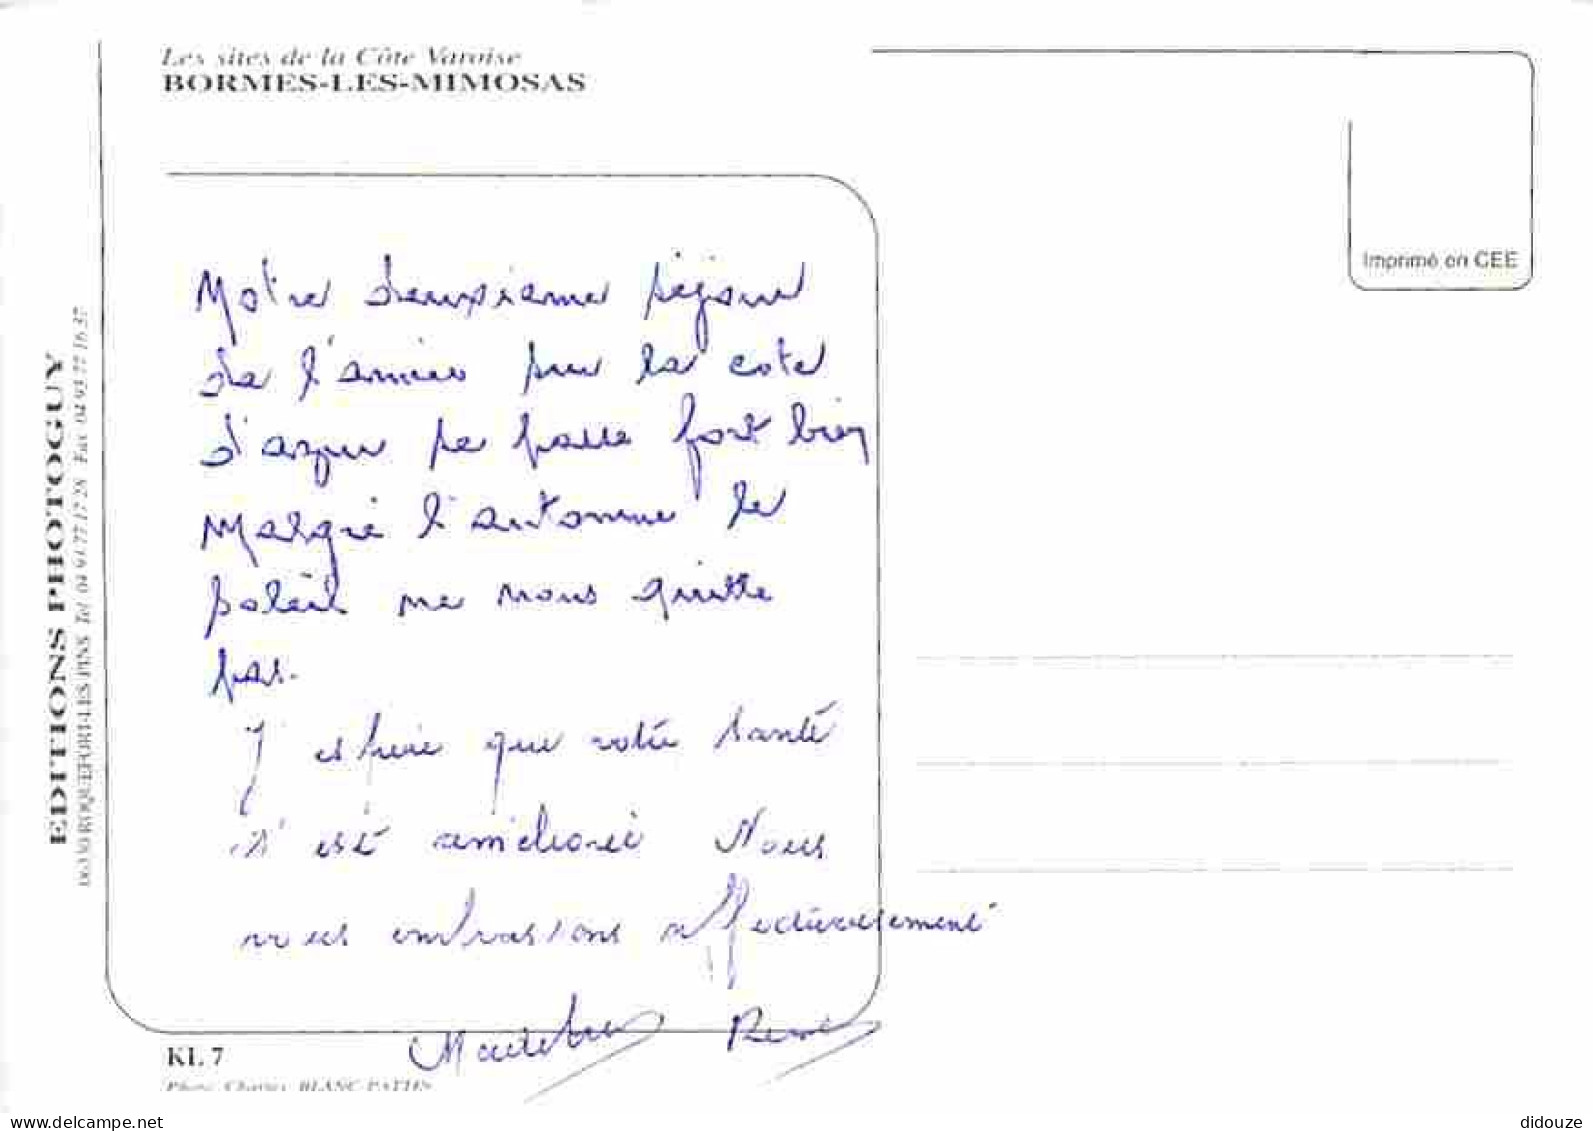 Les sites de la Côte Varoise
BORMES-LES-MIMOSAS
Imprimé en CEE
EDITIONS PHOTOGUY
ROQUEFORT-LES-PINS Tél 04 93 77 17 28 Fax 04 93 77 16 37
Notre deuxieme séjour
de l'année sur la cote
d'azur se passe fort bien
Malgré l'automne le
soleil ne nous quitte
pas.
J'espère que votre santé
s'est améliorée Nous
vous embrassons affectueusement
René
KL 7
Photo Charles BLANC-PATTIN
www.delcampe.net
didouze